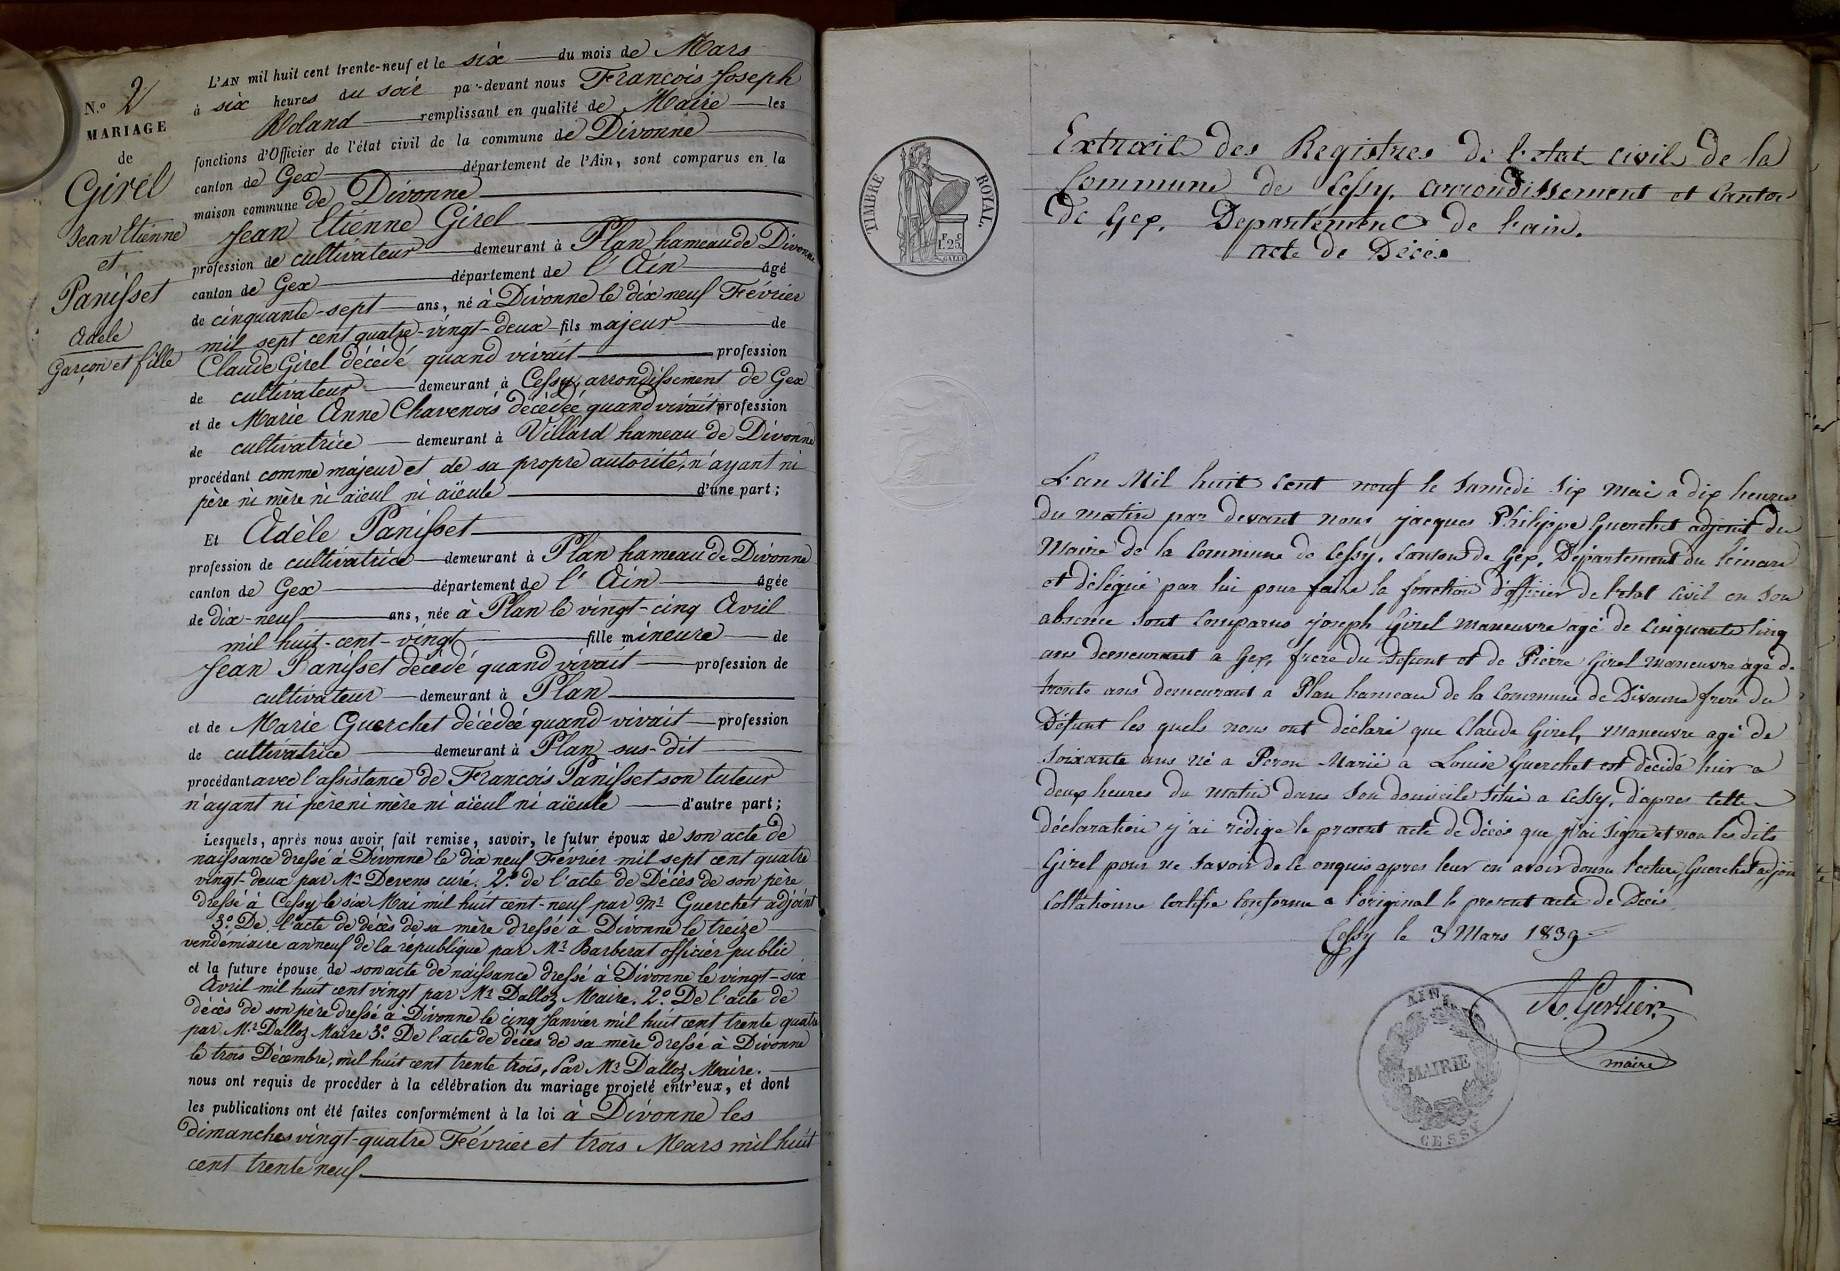 N.o 2
MARIAGE
de
Girel
Jean Etienne
et
Panisset
Adèle
Garçon et fille
L'AN mil huit cent trente-neuf et le six du mois de Mars
à six heures du soir par-devant nous François Joseph
Roland remplissant en qualité de Maire les
fonctions d'Officier de l'état civil de la commune de Divonne
canton de Gex département de l'Ain, sont comparus en la
maison commune de Divonne
Jean Etienne Girel
profession de cultivateur demeurant à Plan hameau de Divonne
canton de Gex département de l'Ain âgé
de cinquante-sept ans, né à Divonne le dix neuf Février
mil sept cent quatre-vingt-deux fils majeur de
Claude Girel décédé quand vivait profession
de cultivateur demeurant à Cessy, arrondissement de Gex
et de Marie Anne Chavenois décédée quand vivait profession
de cultivatrice demeurant à Villard hameau de Divonne
procédant comme majeur et de sa propre autorité, n'ayant ni
père ni mère ni aïeul ni aïeule d'une part;
Et Adèle Panisset
profession de cultivatrice demeurant à Plan hameau de Divonne
canton de Gex département de l'Ain âgée
de dix-neuf ans, née à Plan le vingt-cinq Avril
mil huit-cent-vingt fille mineure de
Jean Panisset décédé quand vivait profession de
cultivateur demeurant à Plan
et de Marie Guerchet décédée quand vivait profession
de cultivatrice demeurant à Plan sus-dit
procédant avec l'assistance de François Panisset son tuteur
n'ayant ni père ni mère ni aïeul ni aïeule d'autre part;
Lesquels, après nous avoir fait remise, savoir, le futur époux de son acte de
naissance dressé à Divonne le dix neuf Février mil sept cent quatre
vingt-deux par Mr Devens curé. 2.o de l'acte de Décès de son père
dressé à Cessy le six Mai mil huit cent-neuf par Mr Guerchet adjoint
3.o De l'acte de décès de sa mère dressé à Divonne le treize
vendémiaire an neuf de la république par Mr Barberat officier public
et la future épouse de son acte de naissance dressé à Divonne le vingt-six
Avril mil huit cent vingt par Mr Dalloz Maire. 2.o De l'acte de
décès de son père dressé à Divonne le cinq Janvier mil huit cent trente quatre
par Mr Dalloz Maire 3.o De l'acte de décès de sa mère dressé à Divonne
le trois Décembre, mil huit cent trente trois, Par Mr Dalloz Maire.
nous ont requis de procéder à la célébration du mariage projeté entr'eux, et dont
les publications ont été faites conformément à la loi à Divonne les
dimanches vingt-quatre Février et trois Mars mil huit
cent trente neuf
TIMBRE ROYAL.
Extrait des Registres de l'etat civil de la
Commune de Cessy, arrondissement et Canton
de Gex, Departement de l'ain.
acte de Décès
L'an Mil huit Cent neuf le Samedi six mai a dix heures
du matin par devant nous jacques Philippe Guerchet adjoint du
Maire de la Commune de Cessy, Canton de Gex, Departement du Leman
et délégué par lui pour faire la fonction d'officier de l'etat Civil en son
absence sont Comparus joseph Girel maneuvre agé de Cinquante Cinq
ans demeurant a Gex, frere du Defunt et de Pierre Girel Maneuvre agé de
trente ans demeurant a Plan hameau de la Commune de Divonne frere du
Défunt les quels nous ont déclaré que Claude Girel, maneuvre agé de
Soixante ans né a Peron Marié a Louise Guerchet est décédé hier a
deux heures du matin dans son domicile situé a Cessy, d'apres cette
déclaration j'ai rédigé le present acte de décès que j'ai signé et non les dits
Girel pour ne savoir de ce enquis apres leur en avoir donné lecture, Guerchet adjoint
Collationné Certifié Conforme a l'original le present acte de Décès
Cessy le 3 Mars 1839
A. Gerlier
maire
AIN
MAIRIE
CESSY